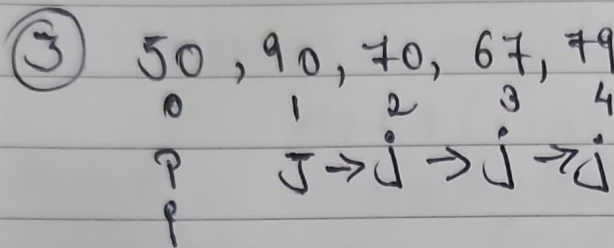 ③ 50, 90, 70, 67, 79
0 1 2 3 4
P J → j → j → j
P